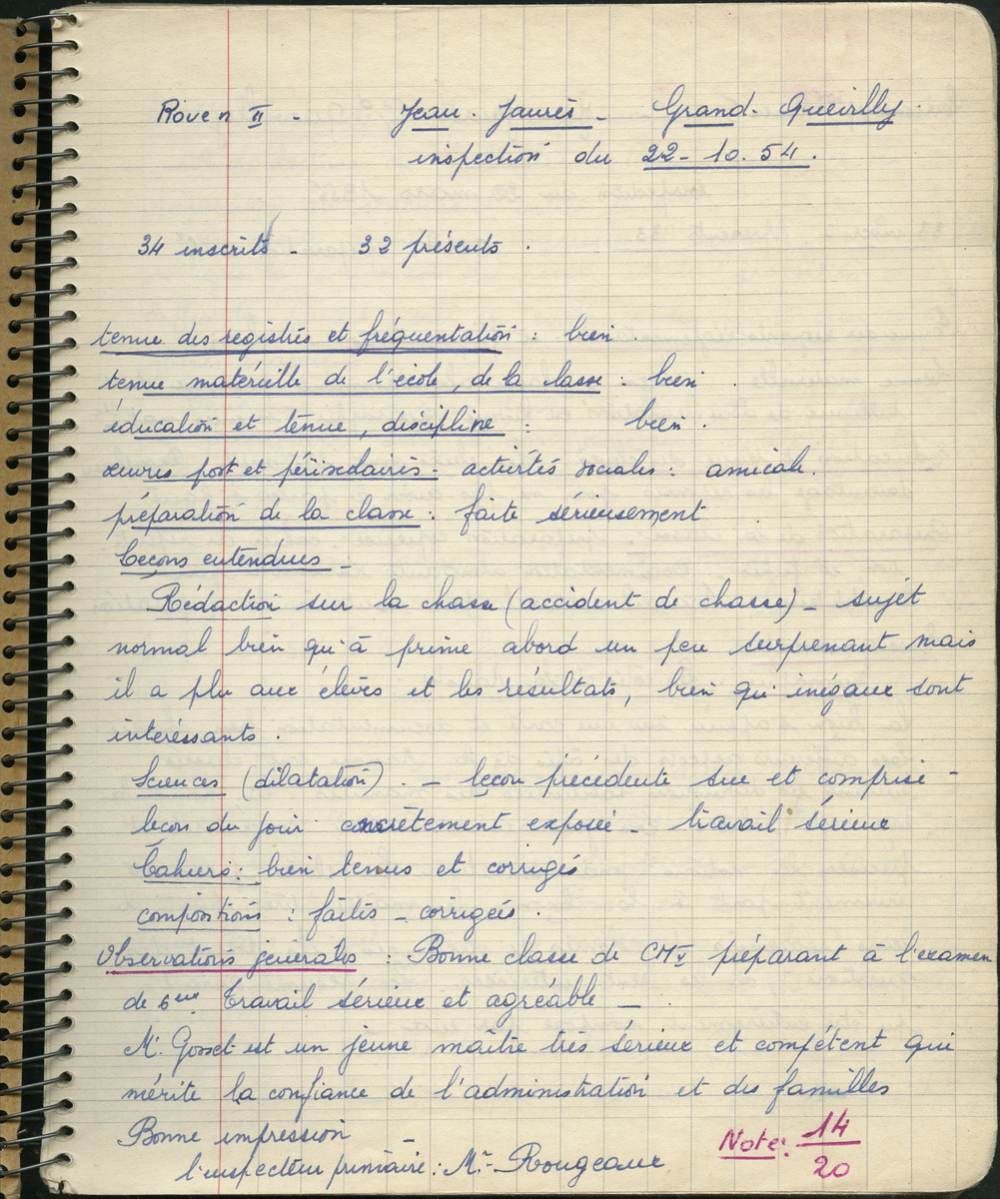 Rouen II - Jean-Jaurès - Grand-Quevilly.
inspection du 22-10.54.
34 inscrits - 32 présents.
tenue des registres et fréquentation : bien.
tenue matérielle de l'école, de la lasse : bien.
éducation et tenue, discipline : bien.
œuvres post et périscolaires - activités sociales : amicale.
préparation de la classe : faite sérieusement.
Leçons entendues -
Rédaction sur la chasse (accident de chasse) - sujet
normal bien qu'à prime abord un peu surprenant mais
il a plu aux élèves et les résultats, bien qu'inégaux sont
intéressants.
Sciences (dilatation). - leçon précédente sue et comprise -
leçon du jour concrètement exposée - travail sérieux
Cahiers : bien tenus et corrigés
compositions : faites - corrigées.
Observations générales : Bonne classe de CM2 préparant à l'examen
de 6ème. Travail sérieux et agréable -
M. Gosset est un jeune maître très sérieux et compétent qui
mérite la confiance de l'administration et des familles
Bonne impression -
l'inspecteur primaire : Mr- Rougeaux.
Note : 14/20